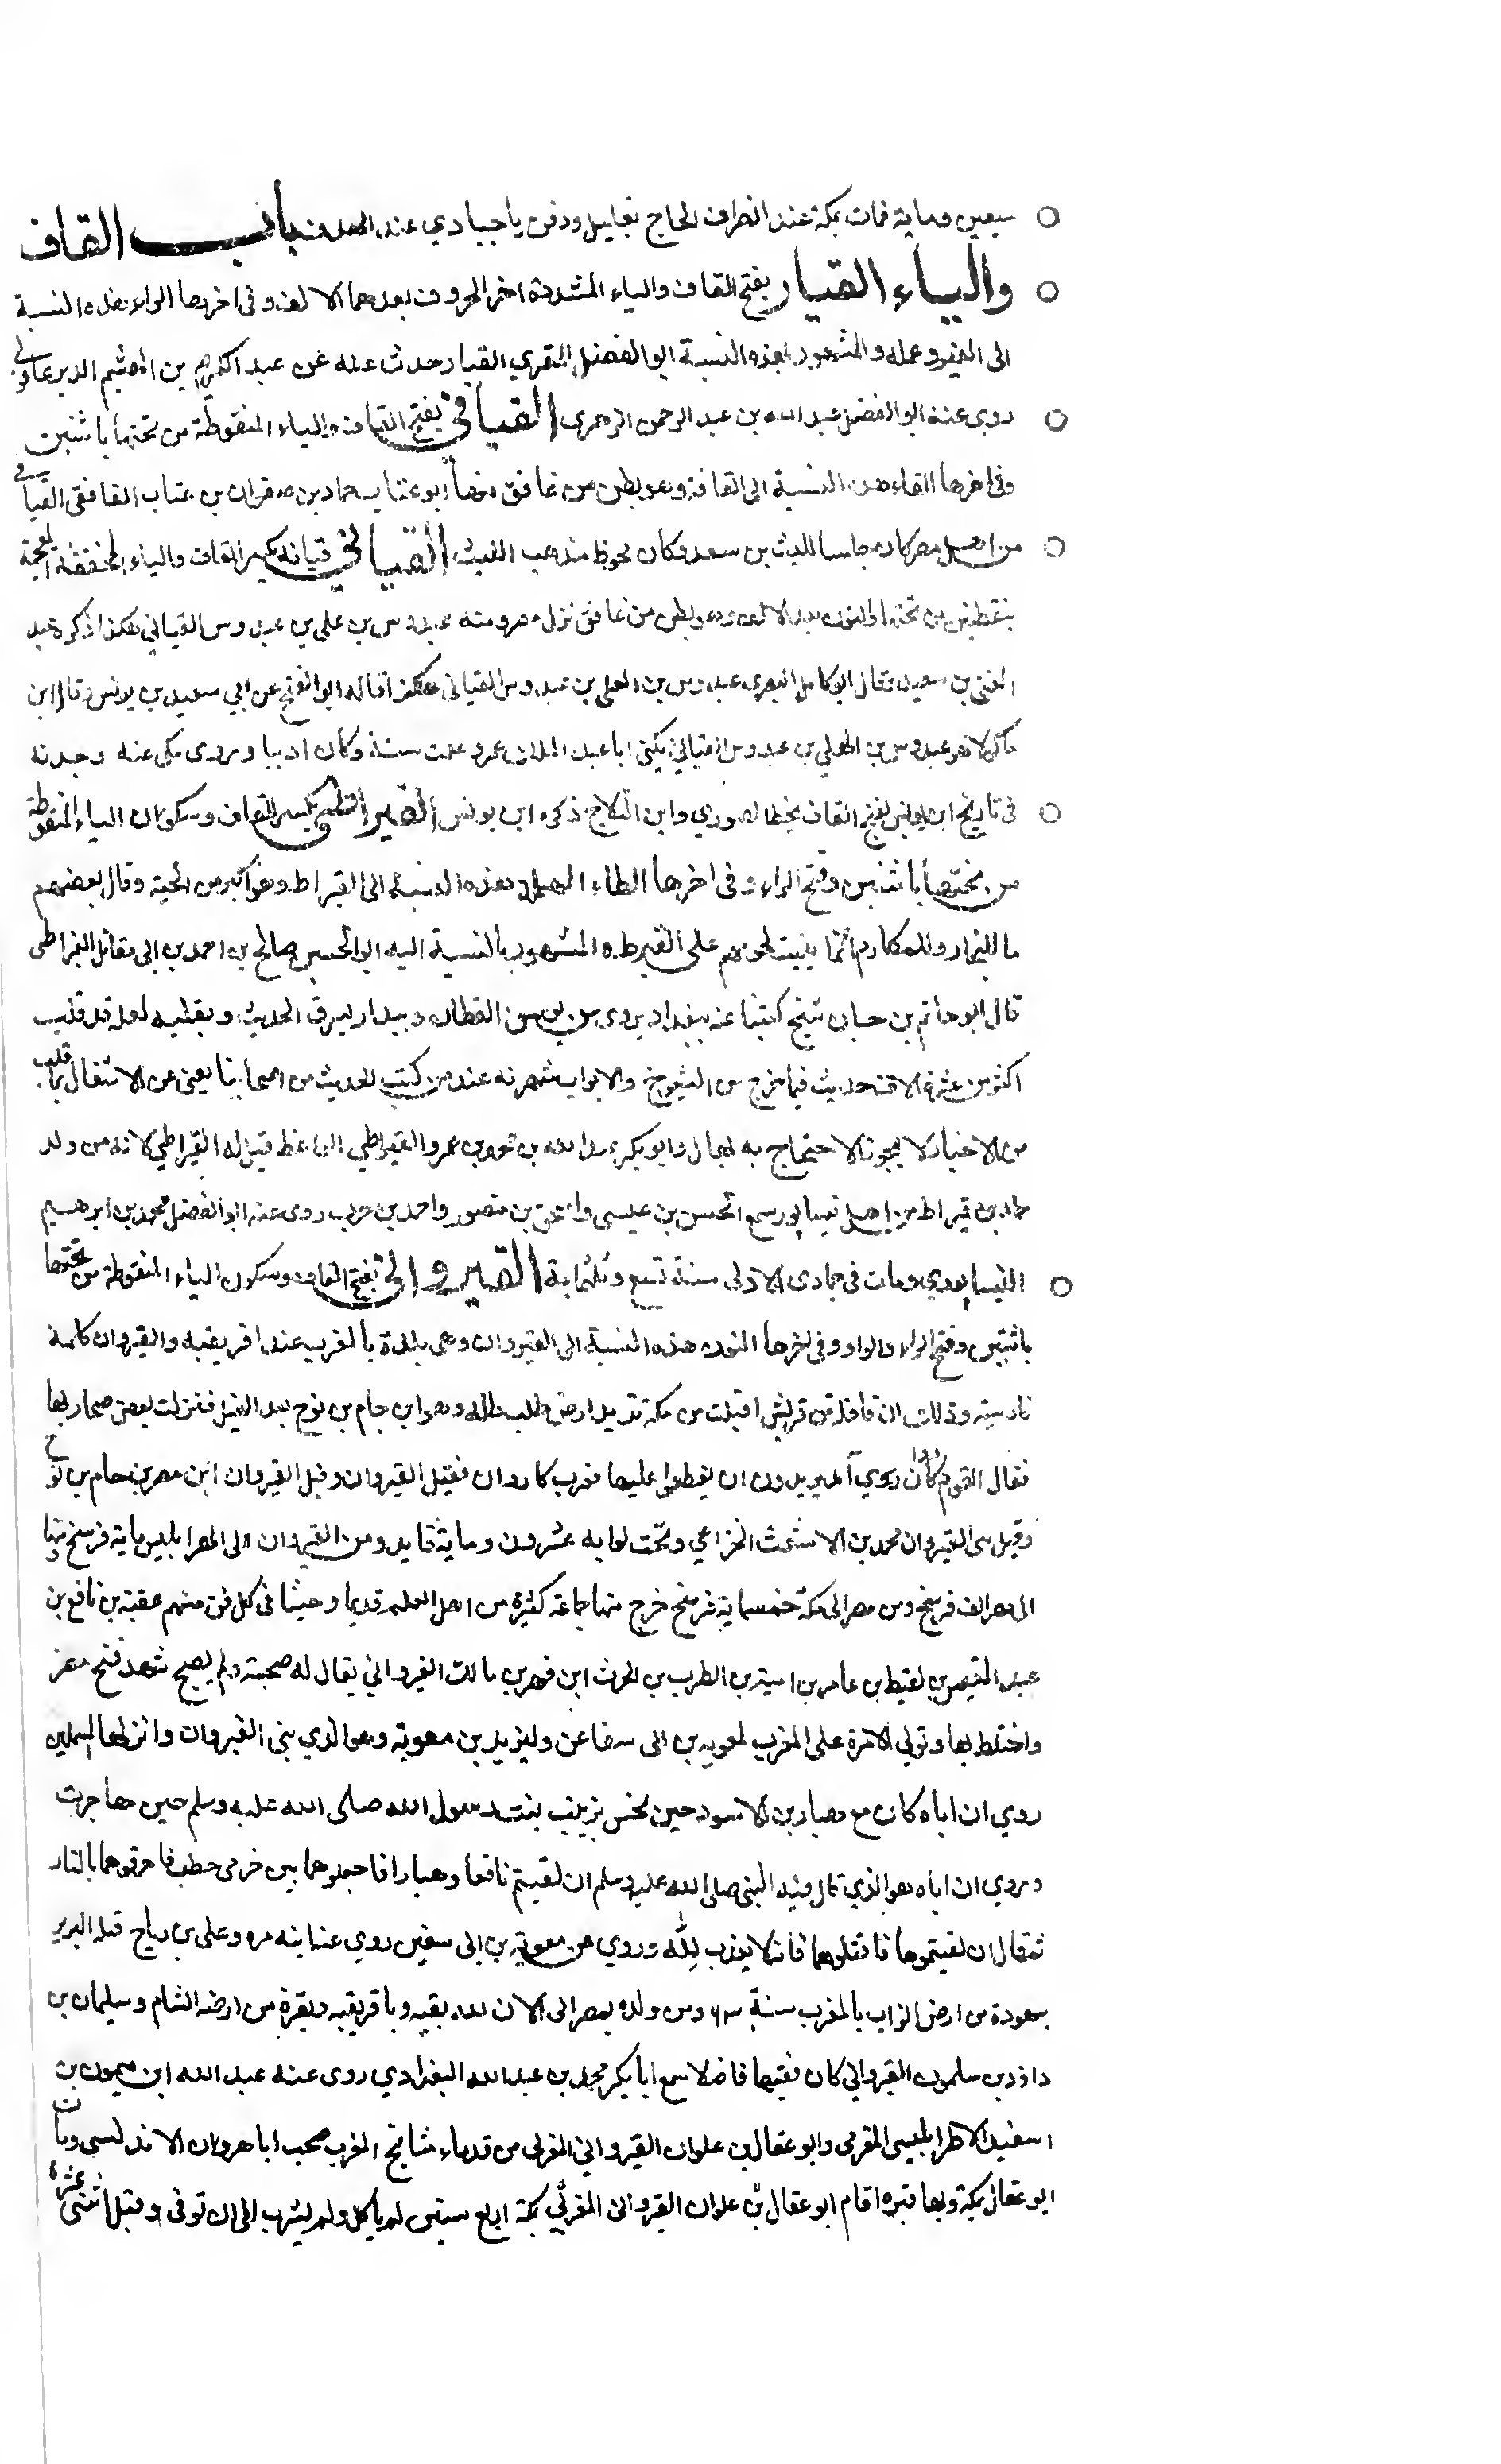 سبعين وماية فمات بمكة عند انصراف الحاج بقليل ودفن باجيادي عند الصدف باب القاف
والياء القيار بفتح القاف والياء المشددة اخر الحروف بعدهما الالف وفي اخرها الراء هذه النسبة
الى القير وعمله والمشهور بهذه النسبة ابو الفضل المقري القيار حدث عنه عن عبد الكريم بن الهيثم الديرعاقولي
روى عنه ابو الفضل عبد الله بن عبد الرحمن الزهري القيافي بفتح القاف والياء المنقوطة من تحتها باثنين
وفي اخرها الفاء هذه النسبة الى القافة وهو بطن من غافق منها ابو عتاب حماد بن صفران بن عتاب الغافقي القيافي
من اهل مصر كان جليسا لليث بن سعد وكان يحفظ مذهب الليث القياني قيانه بكسر القاف والياء المخففة المعجمة
بنقطتين من تحتها والنون بعد الالف وهو بطن من غافق نزل مصر ومنه عبدوس بن علي بن عبدوس القياني هكذا ذكره عبد
الغني بن سعيد وقال ابو كامل البصري عبدوس بن المعلى بن عبدوس القياني هكذا قاله ابو الفتح عن ابي سعيد بن يونس وقال ابن
ماكولا هو عبدوس بن المعلي بن عبدوس القياني يكنى ابا عبد الملك عمرو علت سنه وكان اديبا وروى مكى عنه وجدته
في تاريخ ابن يونس بفتح القاف بخط الصوري وابن الثلاج ذكره ابن يونس القيراطي بكسر القاف وسكون الياء المنقوطة
من تحتها باثنتين وفتح الراء وفي اخرها الطاء المهملة هذه النسبة الى القيراط وهو اكبر من الحبة وقال بعضهم
ما للتجار وللمكارم انما ينبت لحومهم على القيرط والمشهور بالنسبة اليه ابو الحسين صالح بن احمد بن ابى مقاتل القيراطي
قال ابو حاتم بن حبان شيخ كتبنا عنه ببغداد يروي من يوسف القطان وبندار يسرق الحديث ويقلبه لعله قد قلب
اكثر من عشرة الاف حديث فيما خرج من الشيوخ والابواب شهرته عند من كتب الحديث من اصحابنا يغني عن الاشتغال بما قلب
من الاخبار لا يجوز الاحتجاج به بحال وابو بكر عبد الله بن محمد بن عمرو القيراطي الواعظ قيل له القيراطي لانه من ولد
حماد بن قيراط من اهل نيسابور سمع الحسن بن عيسى واسحق بن منصور واحمد بن حرب روى عنه ابو الفضل محمد بن ابرهيم
النيسابوري ومات في جمادى الاولى سنة تسع وثلثماية القيرواني بفتح القاف وسكون الياء المنقوطة من تحتها
باثنتين وفتح الراء والواو وفي اخرها النون هذه النسبة الى القيروان وهي بلدة بالمغرب عند افريقيه والقيروان كلمة
فارسية وذلك ان قافلة من قريش اقبلت من مكة تريد ارض وهو ابن حام بن نوح بعد الفيل فنزلت بعض صحاريها
فقال القوم كاروان يريدون ان يعطوا عليها فعرب كاروان فقيل القيروان وقيل القيروان ابن مصر بن حام بن نوح
وقيل بنى القيروان محمد بن الاشعث الخزاعي وتحت لوايه عشرون وماية قايد ومن القيروان الى اطرابلس ماية فرسخ ومنها
الى مصر الف فرسخ ومن مصر الى مكة خمسماية فرسخ خرج منها جماعة كثيرة من اهل العلم قديما وحديثا في كل فن منهم عقبة بن نافع بن
عبد القيس بن لقيط بن عامر بن امية بن الطرب بن الحرث ابن فهر بن مالك القيرواني يقال له صحبة ولم يصح شهد فتح مصر
واختط بها وتولي الامرة على المغرب لمعويه بن ابى سفيان وليزيد بن معوية وهو الذي بنى القيروان وانزلها المسلمين
روي ان اباه كان مع هبار بن الاسود حين نخس بزينب بنت رسول الله صلى الله عليه وسلم حين هاجرت
وروي ان اباه هو الذي قال فيه النبى صلى الله عليه وسلم ان لقيتم نافعا وهبارا فاجعلوهما بين خرمى حطب فاحرقوهما بالنار
ثم قال ان لقيتموهما فاقتلوهما فانه لا يعذب لله وروي عن معوية بن ابى سفين روي عنه ابنه مره وعلى بن رباح قتله البربر
بهودة من ارض الزاب بالمغرب سنة ٦٣ ومن ولده بمصر الى الان له بقيه وبافريقيه وبقرة من ارض الشام وسليمان بن
داود بن سلمون القيرواني كان فقيها فاضلا سمع ابا بكر محمد بن عبد الله البغدادي روى عنه عبد الله ابن ميمون بن
اسفيل الاطرابلسى المقرى وابو عقال بن علوان القيرواني المغربى من قدماء مشايخ المغرب صحب ابا هرون الاندلسى ومات
ابو عقال بمكة وبها قبره اقام ابو عقال بن علوان القيروانى المغربي بمكة اربع سنين لم ياكل ولم يشرب الى ان توفى وقيل اثنتى عشرة